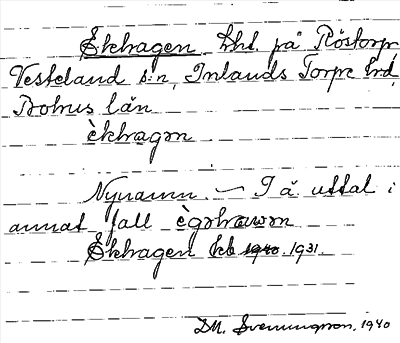 Ekhagen lht. på Röstorp,
Vesteland s:n, Inlands Torpe hrd,
Bohus län
èkhagɔn
Nynamn. — I ä uttal i
annat fall ègɔhawɔn
Ekhagen kb 1940. 1931.
DM. Svenningson, 1940